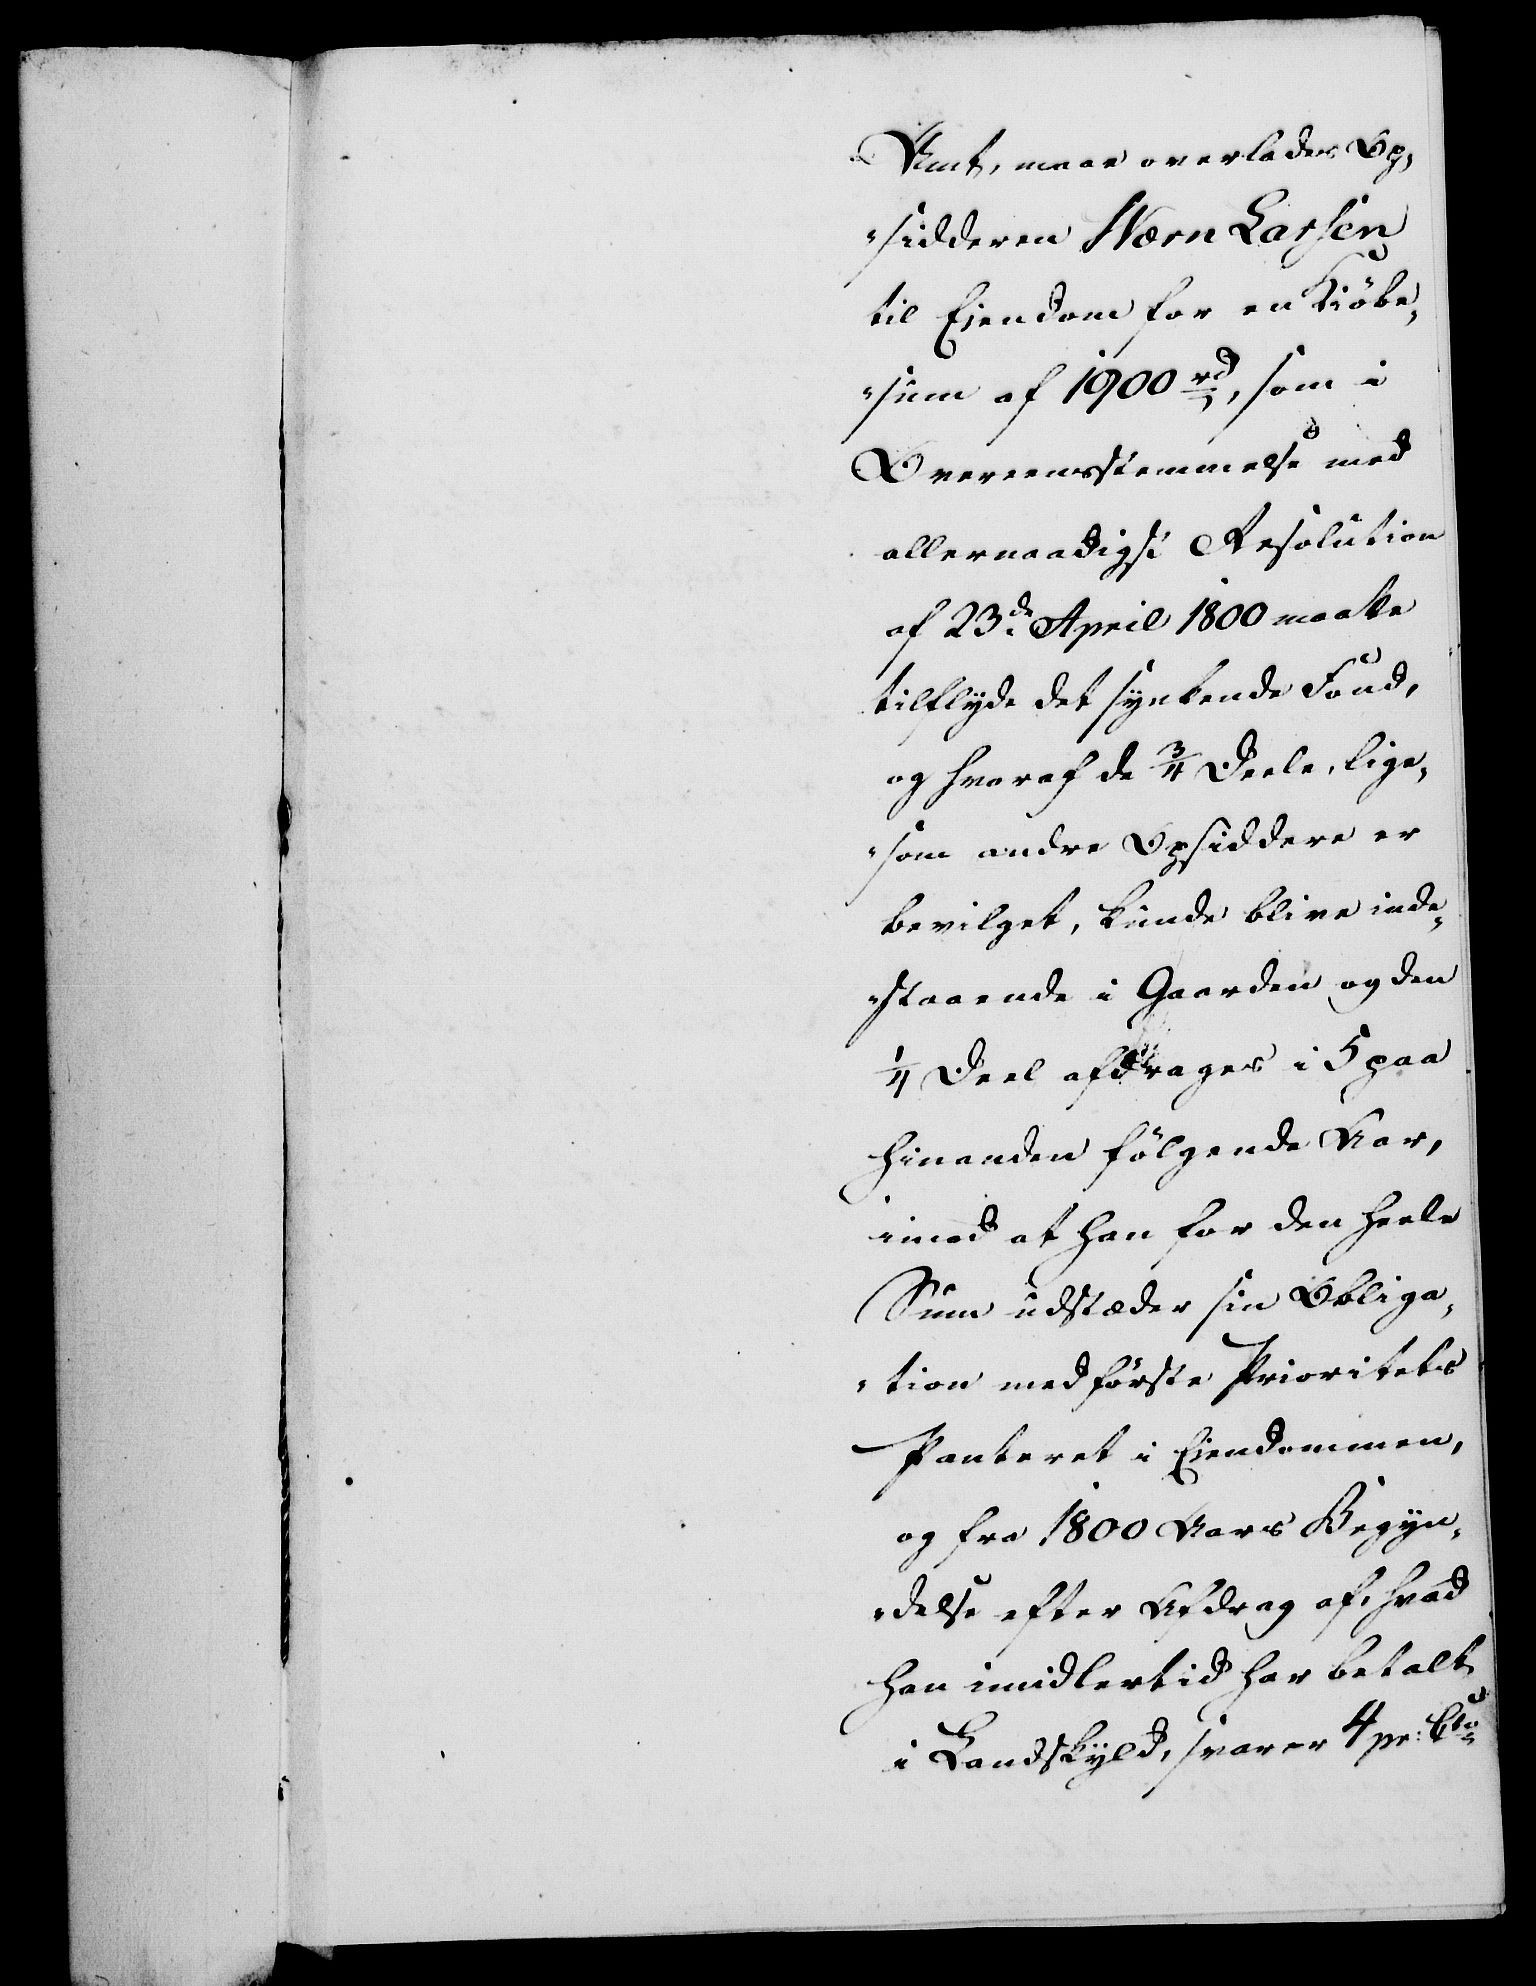 Amt, maae overlades Op,
„sidderen Nærn Larsen
til Eiendom for en Kiöbe,
„sum af 1900 rd, som i
Overeensstemmelse med
allernaadigst Resolution
af 23de April 1800 maatte
tilflyde det synkende Fond,
og hvoraf de 3/4 Deele, lige,
„som andre Opsiddere er
bevilget, kunde blive inde,
„staaende i Gaarden og den
1/4 Deel afdrages i 5 paa
hinanden fölgende Aar,
imod at han for den heele
Sum udstæder sin Obliga,
„tion med förste Prioritets
Panteret i Eiendommen,
og fra 1800 Aars Begyn,
„delse efter Afdrag af, hvad
han imidlertid har betalt
i Landskyld, svarer 4 pr: Cto